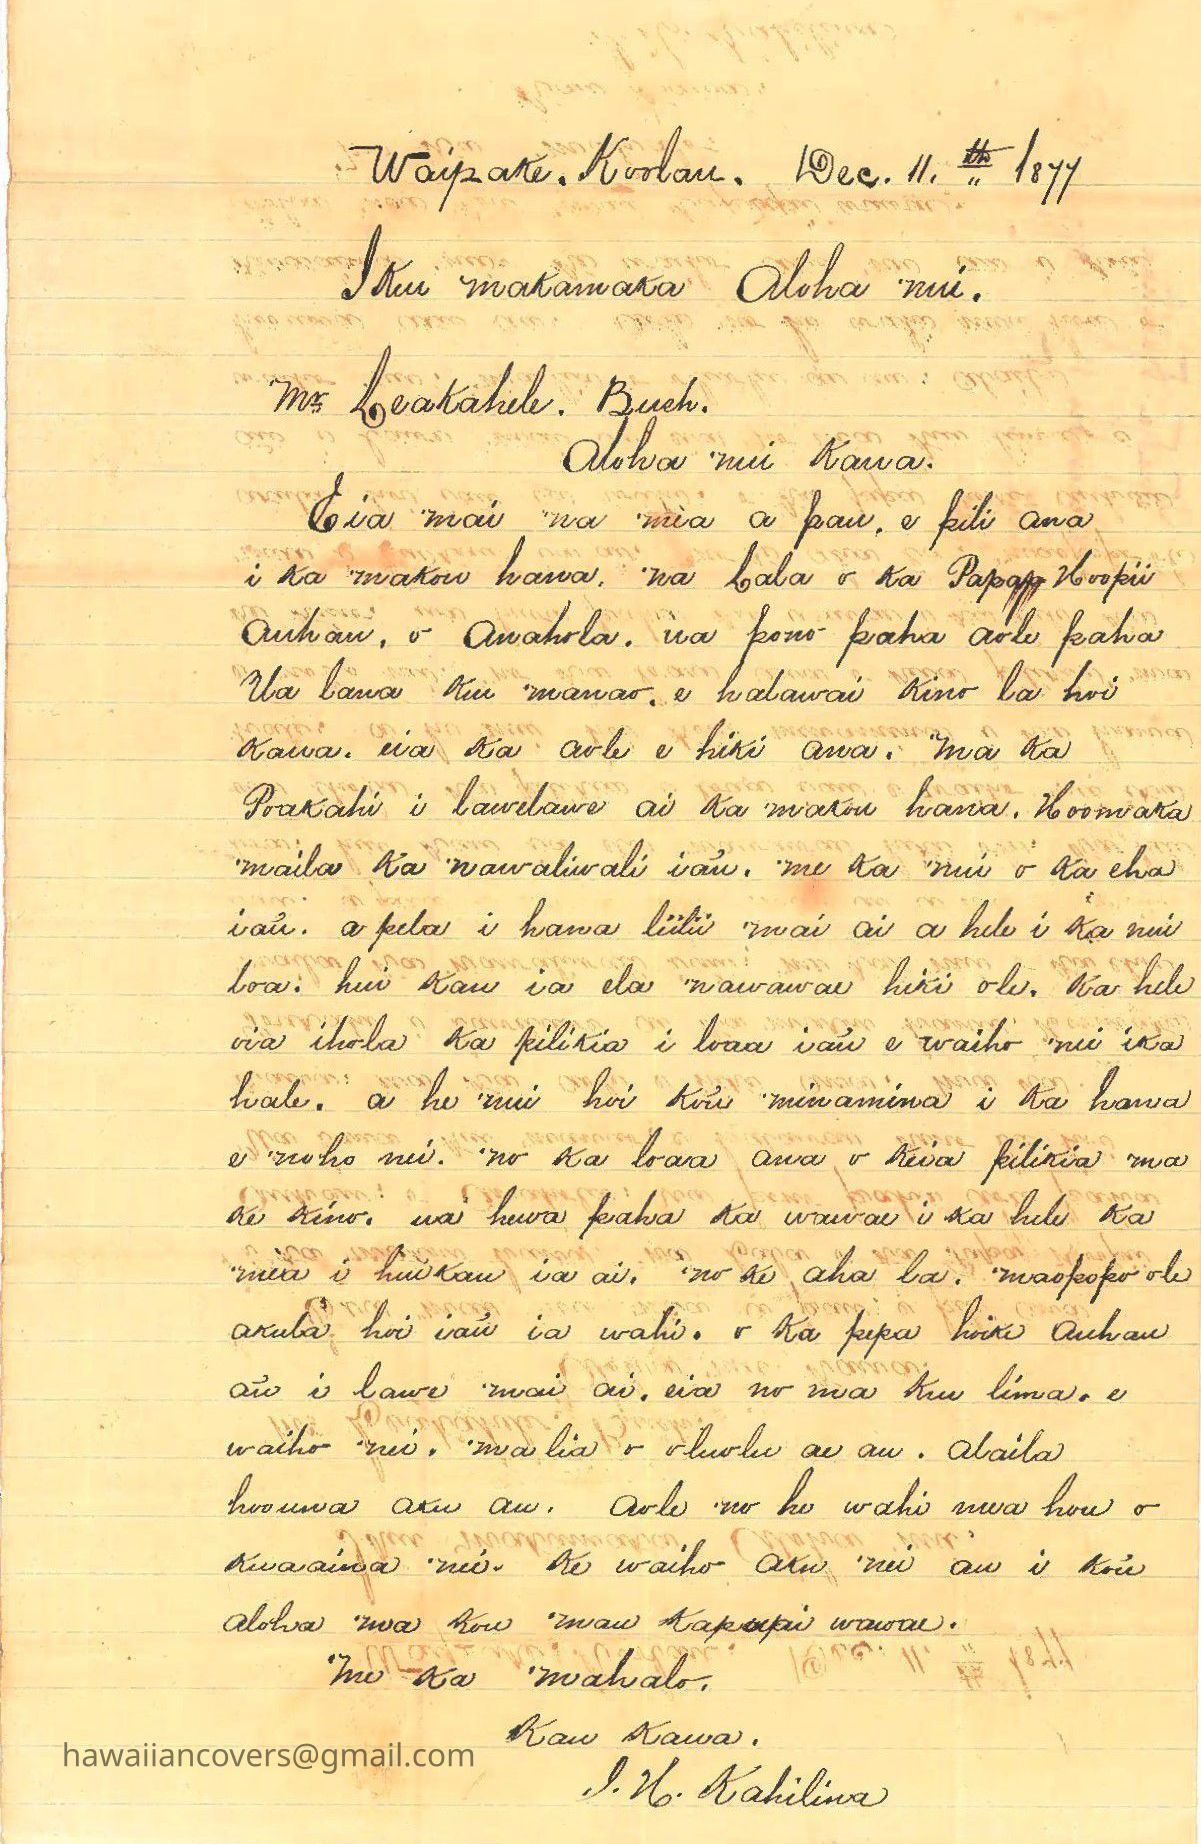 Waipake. Koolau. Dec. 11.th 1877
I Kuu makamaka Aloha nui.
Mr Leakahele. Bueh.
Aloha nui Kaua.
Eia mai na mea a pau, e pili ana
i Ka makou hana, na Lala o Ka Papa Hoopii
Auhau, o Anahola. ua pono paha aole paha
Ua lana Kuu manao, e halawai Kino la hoi
Kaua. eia Ka aole e hiki ana. Ma Ka
Poakahi i lawelawe ai Ka makou hana. Hoomaka
maila Ka nawaliwali ia'u. me Ka nui o Ka eha
ia'u. a pela i hana liilii mai ai a hele i Ka nui
loa. hui Kau ia ela nawawae hiki ole. Ka hele
oia ihola Ka pilikia i loaa ia'u e waiho nei iKa
hale. a he nui hoi Ko'u minamina i Ka hana
e noho nei. no Ka loaa ana o Keia pilikia ma
Ke Kino. ua hewa paha Ka wawae i Ka hele Ka
mea i huikau ia ai. no Ke aha la. maopopo ole
akula hoi ia'u ia wahi. o Ka pepa hoike Auhau
a'u i lawe mai ai. eia no ma Kuu lima. e
waiho nei. malia o oluolu ae au. alaila
hoouna aku au. Aole no he wahi mea hou o
Kuaaina nei. Ke waiho aku nei au i Ko'u
aloha ma Kou mau Kapuai wawae.
Me Ka mahalo.
Kau Kauwa.
J. H. Kahilina
hawaiiancovers@gmail.com